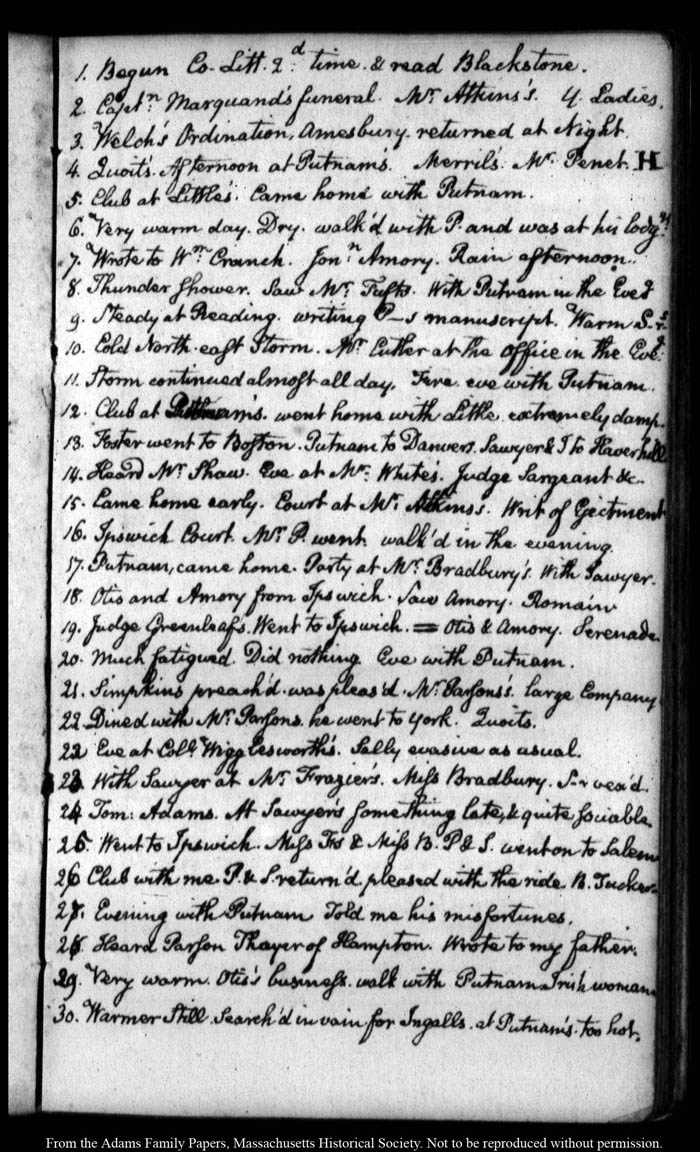 1. Begun Co-Litt. 2d. time. & read Blackstone.
2. Captn. Marquand's funeral. Mr. Atkins's. Y. Ladies.
3. Welch's Ordination, Amesbury. returned at Night.
4. Quoits. Afternoon at Putnam's. Merril's. Mr. Penet. H
5. Club at Little's. Came home with Putnam.
6. Very warm day. Dry. walk'd with P. and was at his lodgs.
7. Wrote to Wm. Cranch. Jonn. Amory. Rain afternoon.
8. Thunder shower. Saw Mr. Tufts. With Putnam in the Eveg.
9. Steady at Reading. writing P-s manuscript. Warm
10. Cold North-east Storm. Mr. Cutler at the office in the Eveg.
11. Storm continued almost all day. Fire. eve with Putnam.
12. Club at Putnam's. went home with Little. extremely damp.
13. Foster went to Boston. Putnam to Danvers. Sawyer & I to Haverhill
14. Heard Mr. Shaw. Eve at Mr. White's. Judge Sargeant &c.
15. Came home early. Court at Mr. Atkins's. Writ of Ejectment
16. Ipswich Court. Mr. P. went. walk'd in the evening.
17. Putnam, came home. Party at Mr. Bradbury's. With Sawyer.
18. Otis and Amory from Ipswich. Saw Amory. Romain
19. Judge Greenleaf's. Went to Ipswich. = Otis & Amory. Serenade.
20. Much fatigued. Did nothing. Eve with Putnam.
21. Simpkins preach'd. was pleas'd. Mr. Parsons's. large Company.
22. Dined with Mr. Parsons. he went to York. Quoits.
22 Eve at Coll. Wigglesworth's. Sally evasive as usual.
23. With Sawyer at Mr. Frazier's. Miss Bradbury. S-r vex'd.
24 Tom: Adams. At Sawyer's something late, & quite sociable.
25. Went to Ipswich. Miss Frs & Miss B. P & S. went on to Salem
26 Club with me. P. & S. return'd. pleased with the ride. B. Tucker.
27. Evening with Putnam Told me his misfortunes.
28. Heard Parson Thayer of Hampton. Wrote to my father.
29. Very warm. Otis's business. walk with Putnam Irish woman.
30. Warmer Still. Search'd in vain for Ingalls. at Putnam's. too hot.
From the Adams Family Papers, Massachusetts Historical Society. Not to be reproduced without permission.